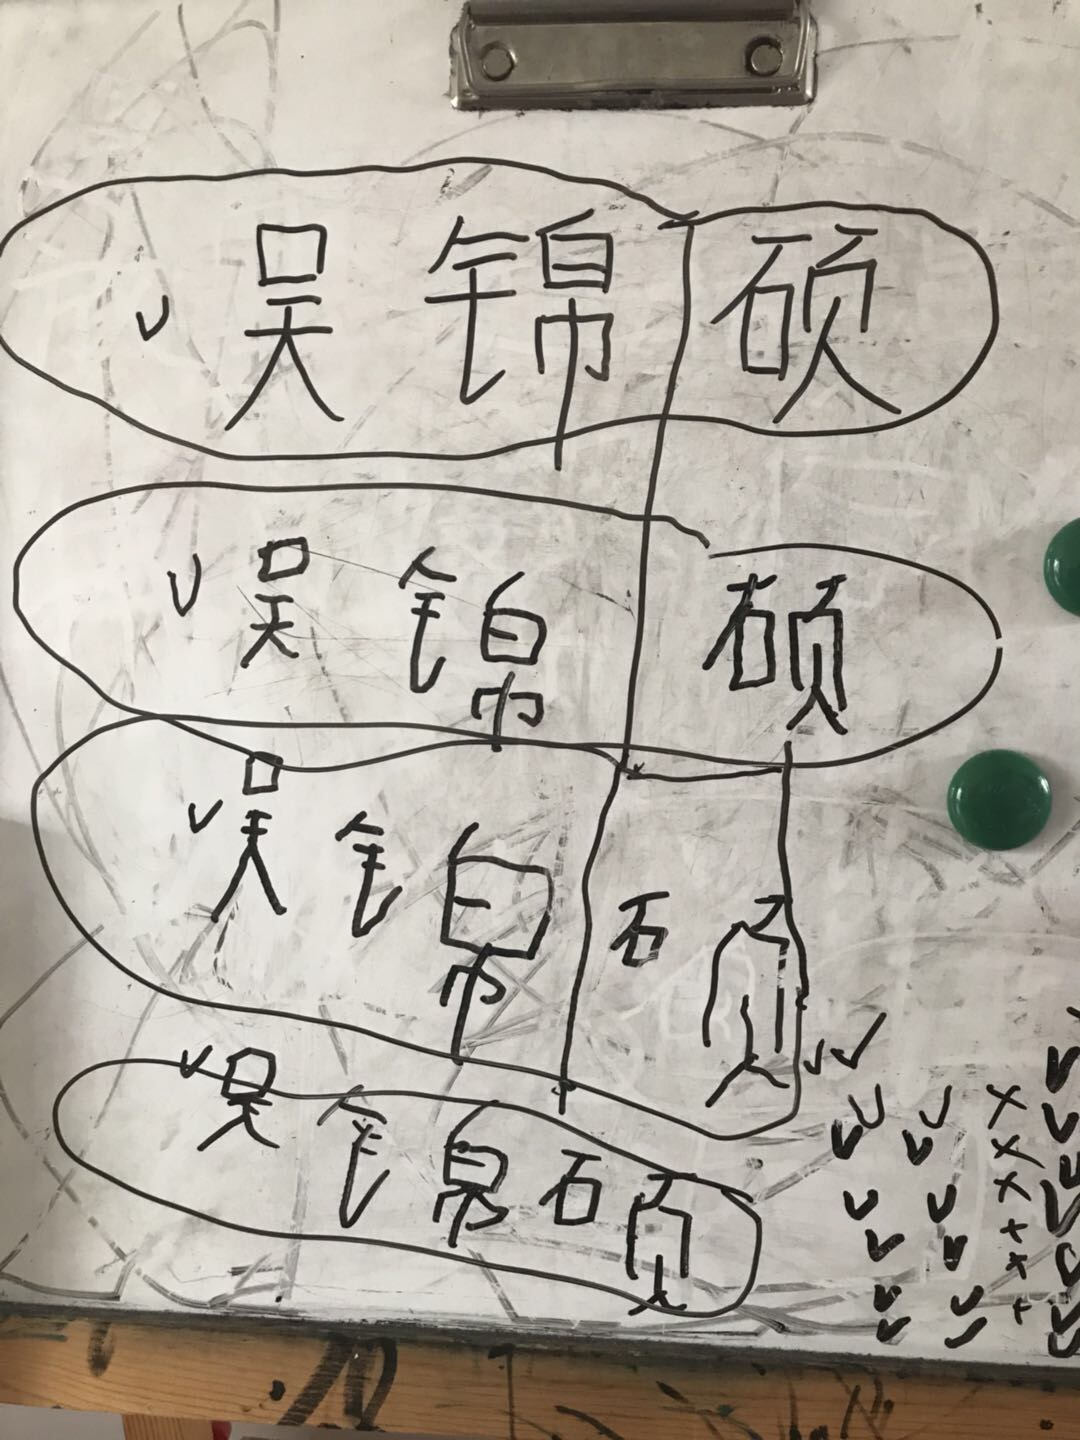 吴锦硕
吴锦硕
吴锦硕
吴锦硕